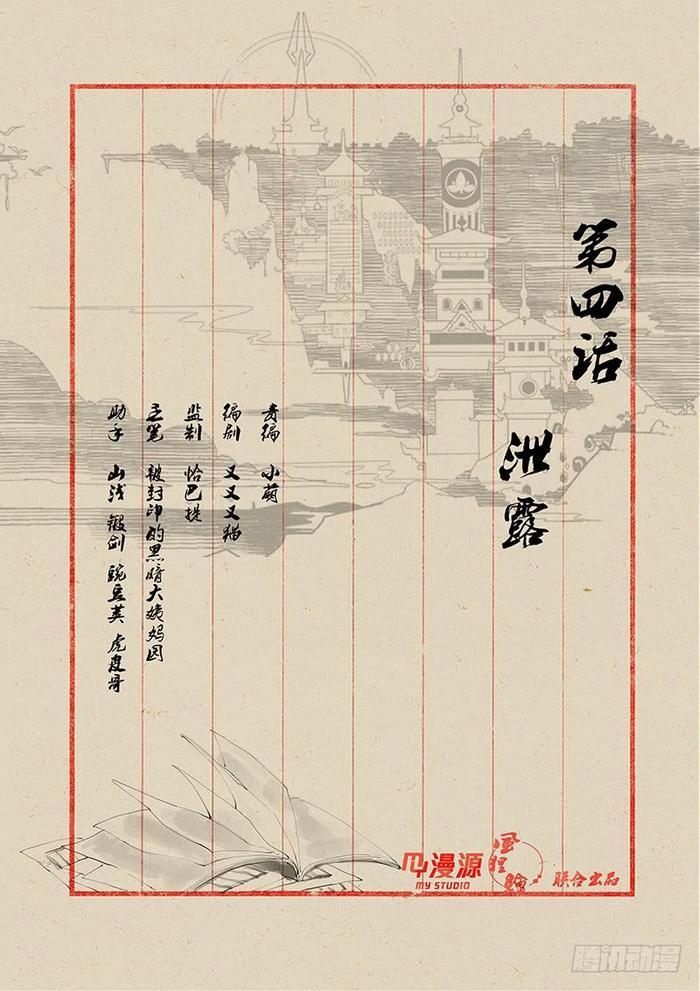 第四话
泄露
责编 小萌
编剧 又又又猫
监制 恰巴提
主笔 被封印的黑暗大姨妈囧
助手 山浅 锻剑 豌豆荚 虎皮哥
漫源
MY STUDIO
联合出品
腾讯动漫